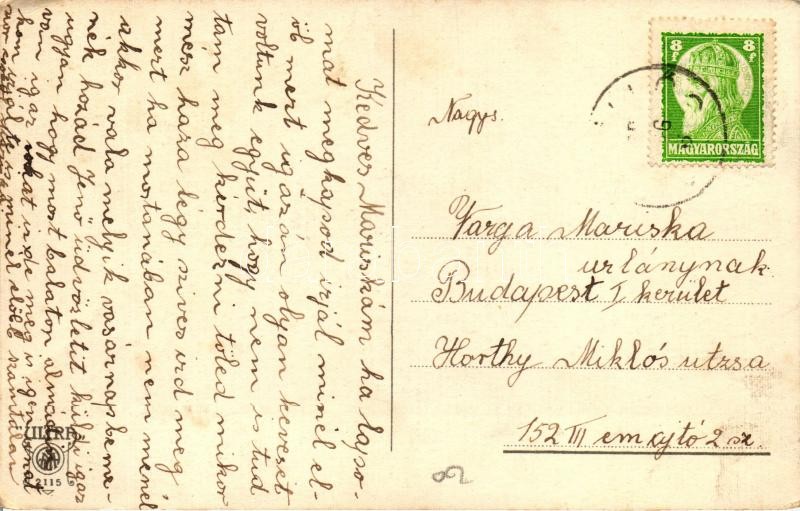 Kedves Mariskám ha lapso-
mat meghapod irjál minél el-
öb mert igazán olyan keveset
voltunk együt, hogy nem is tud
tam meg kérdezni töled mikor
mesz hara légy sives ird meg
mert ha mostanában nem menel
akkor vala melyik vasárnap bema-
nék hozád Jenö üdvözletit küldi igaz
ugyan hogy most balaton
van igaz inde meg is igen
8f 8f
MAGYARORSZÁG
Nagys.
Varga Mariska
urlánynak
Budapest I kerület
Horthy Miklós utzsa
152 III em ajtó 2 sz.
ULTRA
2115